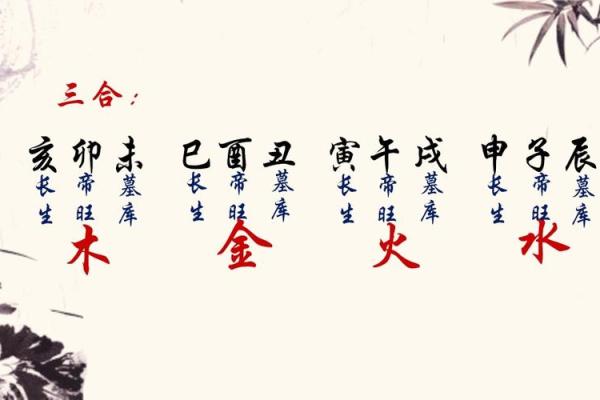 三合：
亥卯未 巳酉丑 寅午戌 申子辰
长生 帝旺 墓库 长生 帝旺 墓库 长生 帝旺 墓库 长生 帝旺 墓库
木 金 火 水